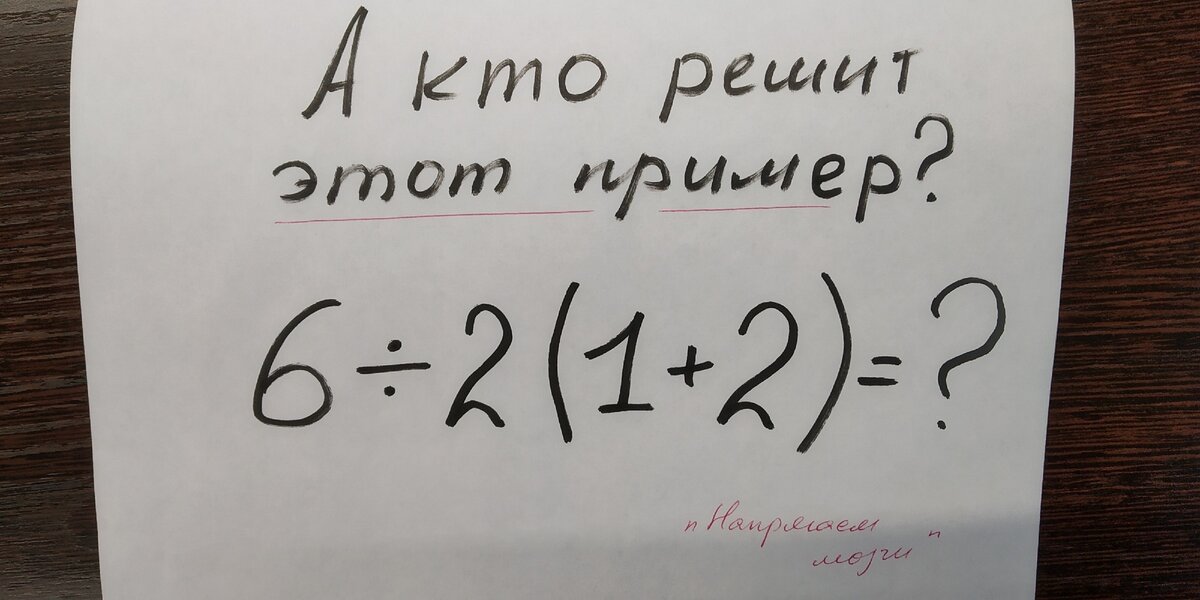 А кто решит
этот пример?
6÷2(1+2)=?
"Напрягаем
мозги"